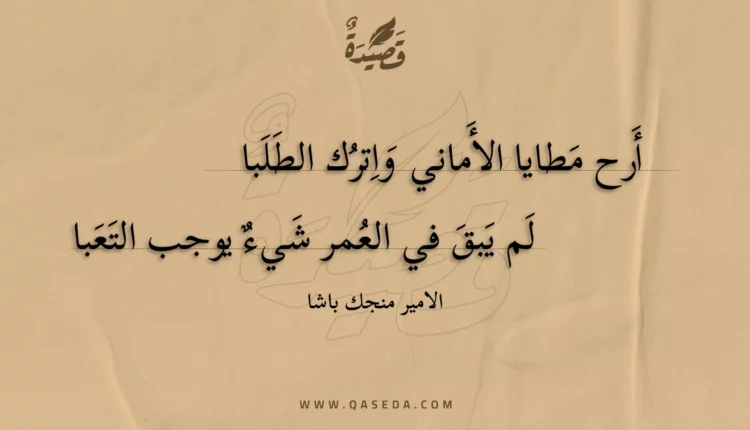 قَصِيدَةٌ
أَرح مَطايا الأَماني وَاِترُك الطَلَبا
لَم يَبقَ في العُمر شَيءٌ يوجب التَعَبا
الامير منجك باشا
WWW.QASEDA.COM